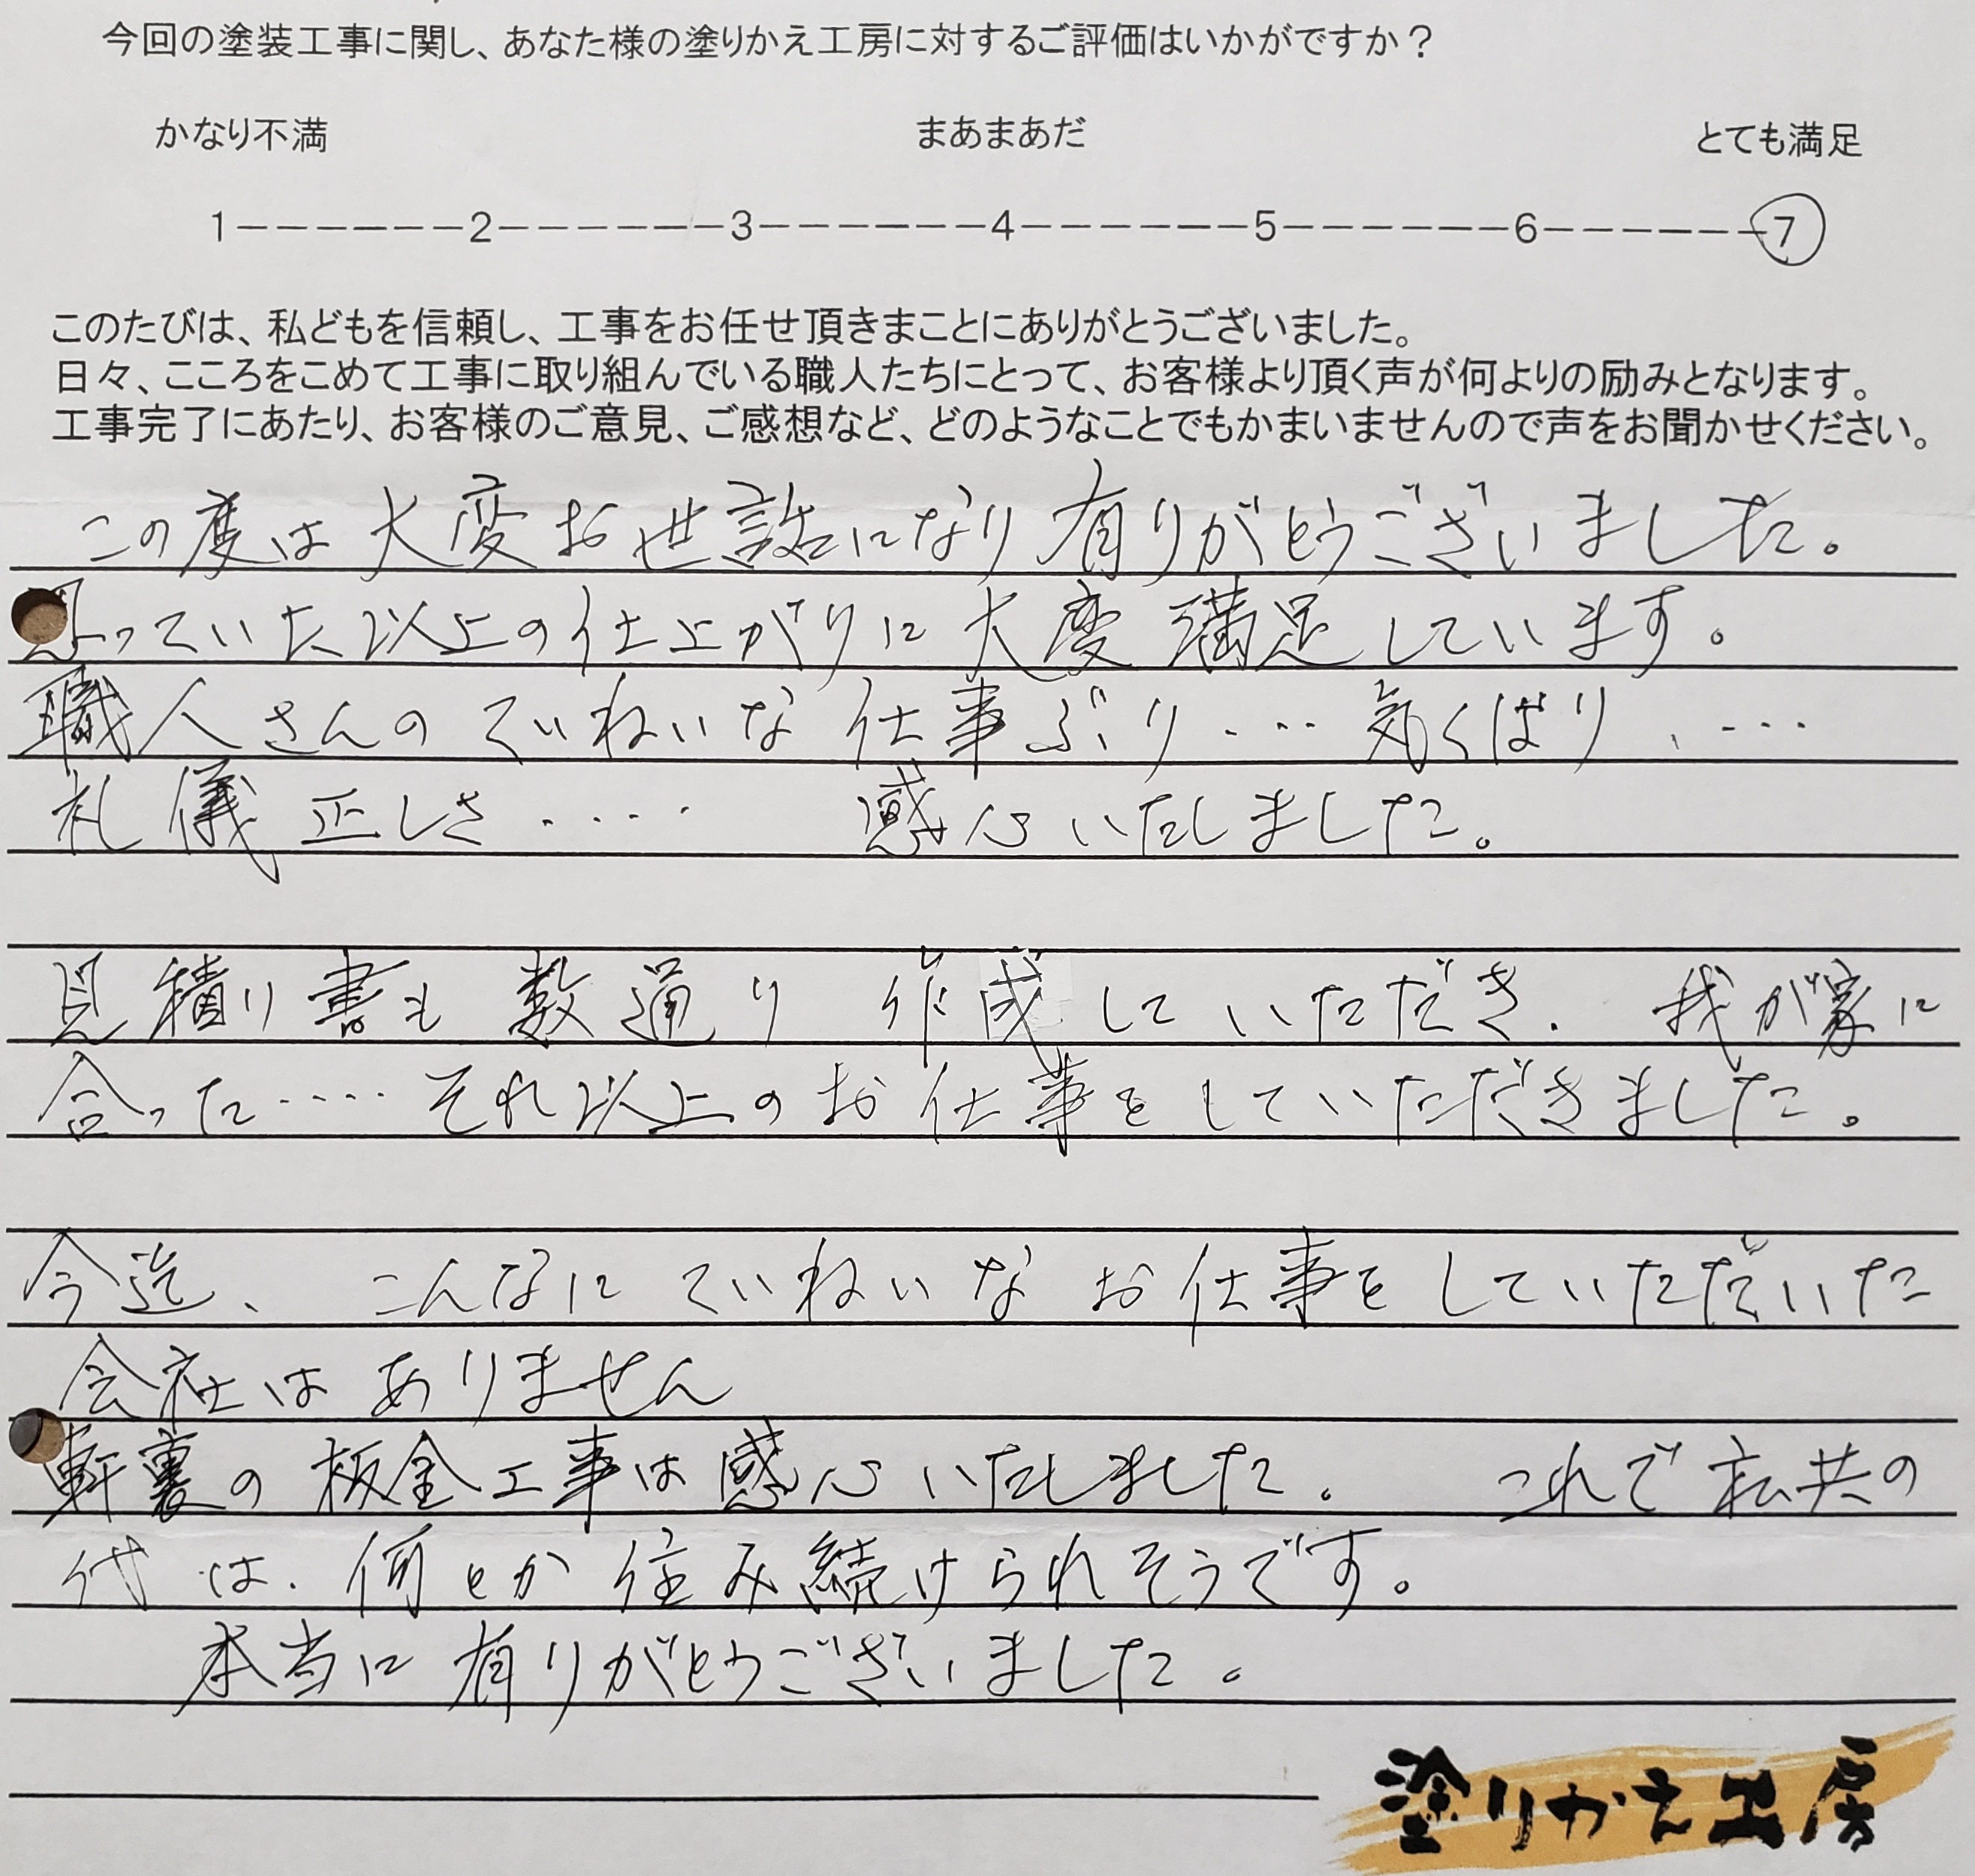 今回の塗装工事に関し、あなた様の塗りかえ工房に対するご評価はいかがですか？
かなり不満 まあまあだ とても満足
1------2------3------4------5------6------7
このたびは、私どもを信頼し、工事をお任せ頂きまことにありがとうございました。
日々、こころをこめて工事に取り組んでいる職人たちにとって、お客様より頂く声が何よりの励みとなります。
工事完了にあたり、お客様のご意見、ご感想など、どのようなことでもかまいませんので声をお聞かせください。
この度は大変お世話になり有りがとうございました。
っていた以上の仕上がりに大変満足しています。
職人さんのていねいな仕事ぶり‥‥気くばり、‥‥
礼儀正しさ‥‥ 感心いたしました。
見積り書も数通り作成していただき、我が家に
合った‥‥それ以上のお仕事をしていただきました。
今迄、こんなにていねいなお仕事をしていただいた
会社はありません
軒裏の板金工事は感心いたしました。 これで私共の
代は、何とか住み続けられそうです。
本当に有りがとうございました。
塗りかえ工房